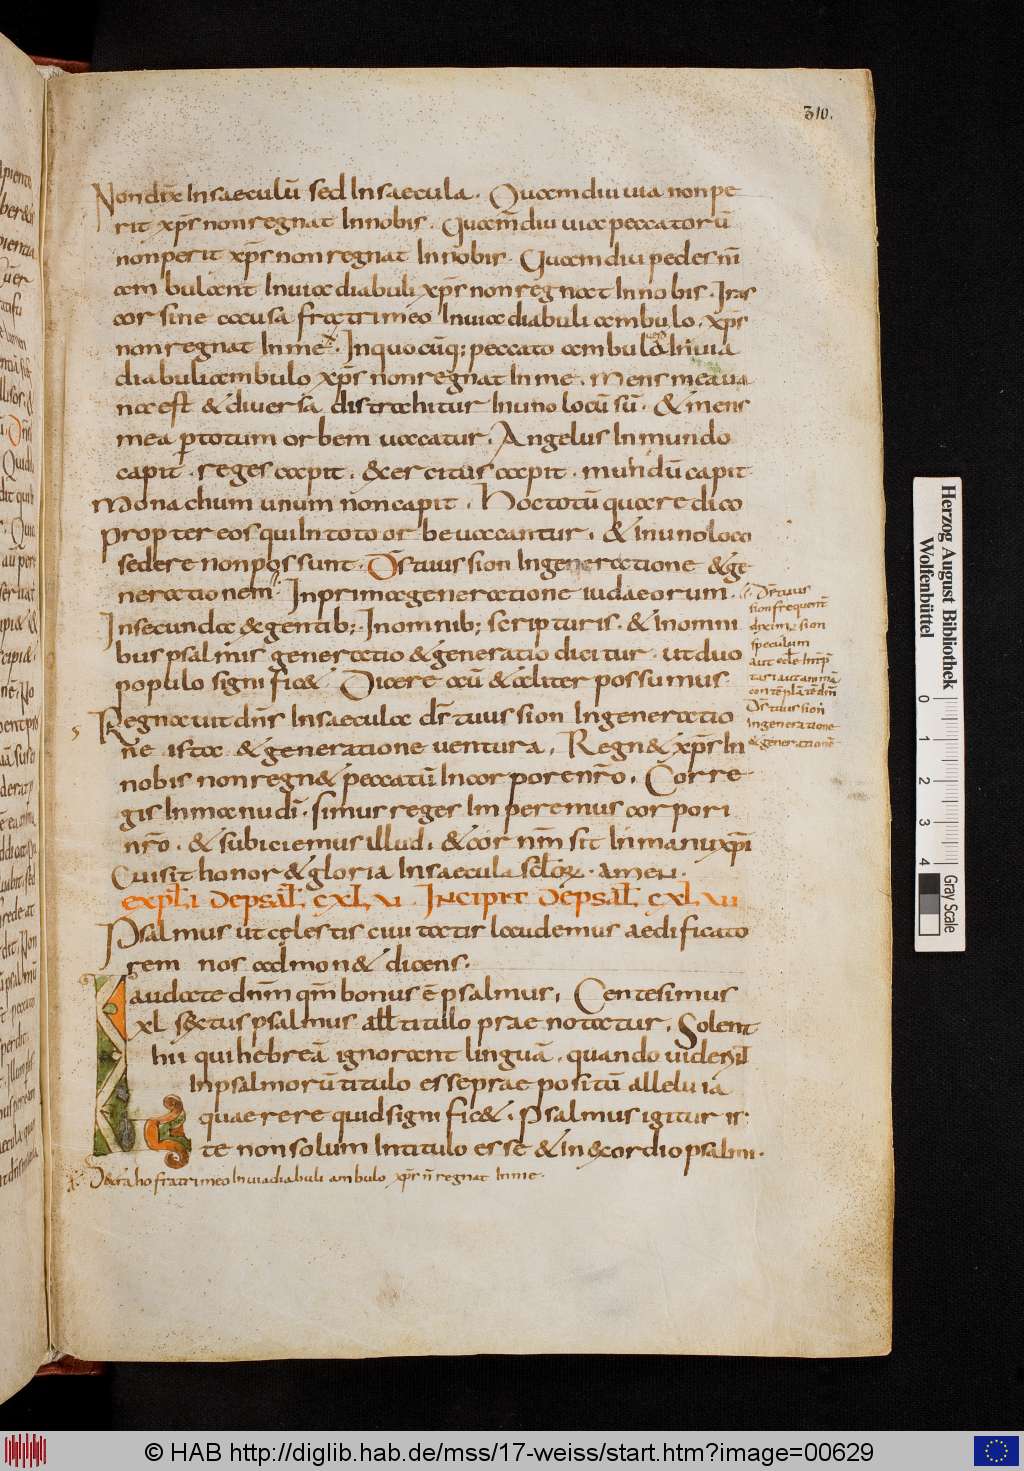 310.
Non dix̄ In saeculū sed In saecula. Quamdiu uia non pe
rit xp̄s non regnat In nobis. Quam̄diu uia peccatorū
non perit xp̄s non regnat In nobis. Quamdiu pedes nr̄i
ambulant In uia diabuli xp̄s non regnat In nobis. Iras
cor sine causa fratri meo In uia diabuli ambulo. xp̄s
non regnat In me. In quocūq; peccato ambulo In uia
diabuli ambulo xp̄s non regnat In me. Mens mea ua
na est & diuersa distrahitur In uno locū sū. & mens
mea p totum orbem uacatur. Angelus In mundo
capit. reges capit. exercitus capit. mundū capit
Monachum unum non capit. Hoc totū quare dico
propter eos qui In toto orbe uacantur. & in uno loco
sedere non possunt. Ds̄ tuus sion In generatione & ge
nerationem. In prima generatione iudaeorum.
In secunda & gentib;. In omnib; scripturis. & in omni
bus psalmis generatio & generatio dicitur. ut duo
populo signific&. Dicere aū & aliter possumus.
Regnauit dn̄s In saecula ds̄ tuus sion In generatio
ne ista & generatione uentura. Regn& xp̄s In
nobis non regn& peccatū In corpore nr̄o. Cor re
gis In manu dī. simus reges Imperemus corpori
nr̄o. & subiciemus illud. & cor nr̄m sit In manu xp̄i
Cui sit honor & gloria In saecula scl̄oꝝ. amen.
expl̄i de psal̄ cxlvi Incipit de psal̄ cxlvii
Psalmus ut celestis ciuitatis laudemus aedificato
rem nos admon& dicens.
Laudate dn̄m qm̄ bonus ē psalmus. Centesimus
xl sextus psalmus all̄ titulo praenotatur. Solent
hii qui hebreā ignorant linguā. quando uiderint
In psalmorū titulo esse praepositū alleluia
quaerere quid signific&. Psalmus igitur is
te non solum In titulo esse & in exordio psalmi.
Detraho fratri meo In uia diabuli ambulo xp̄s n̄ regnat In me.
Ds̄ tuus
sion frequent̄
dixim; sion
speculum
aut eccle Interp̄
tari aut animā
contēplātē dm̄
Ds̄ tuus sion
In generatione
& generationē
Herzog August Bibliothek
Wolfenbüttel
0 1 2 3 4
Gray Scale
© HAB http://diglib.hab.de/mss/17-weiss/start.htm?image=00629